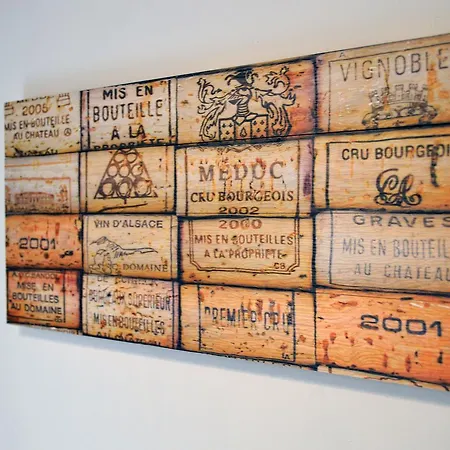 2005
MIS EN BOUTEILLE
AU CHATEAU
MIS EN
BOUTEILLE
A LA
PROPRIETE
VIGNOBLE
MEDOC
CRU BOURGEOIS
2002
CRU BOURGEOIS
2001
VIN D'ALSACE
DOMAINE
2000
MIS EN BOUTEILLES
A LA PROPRIETE
CB
GRAVES
MIS EN BOUTEILLES
AU CHATEAU
MISE EN
BOUTEILLES
AU DOMAINE
SUPERIEUR
MIS EN BOUTEILLES
PREMIER CRU
2001